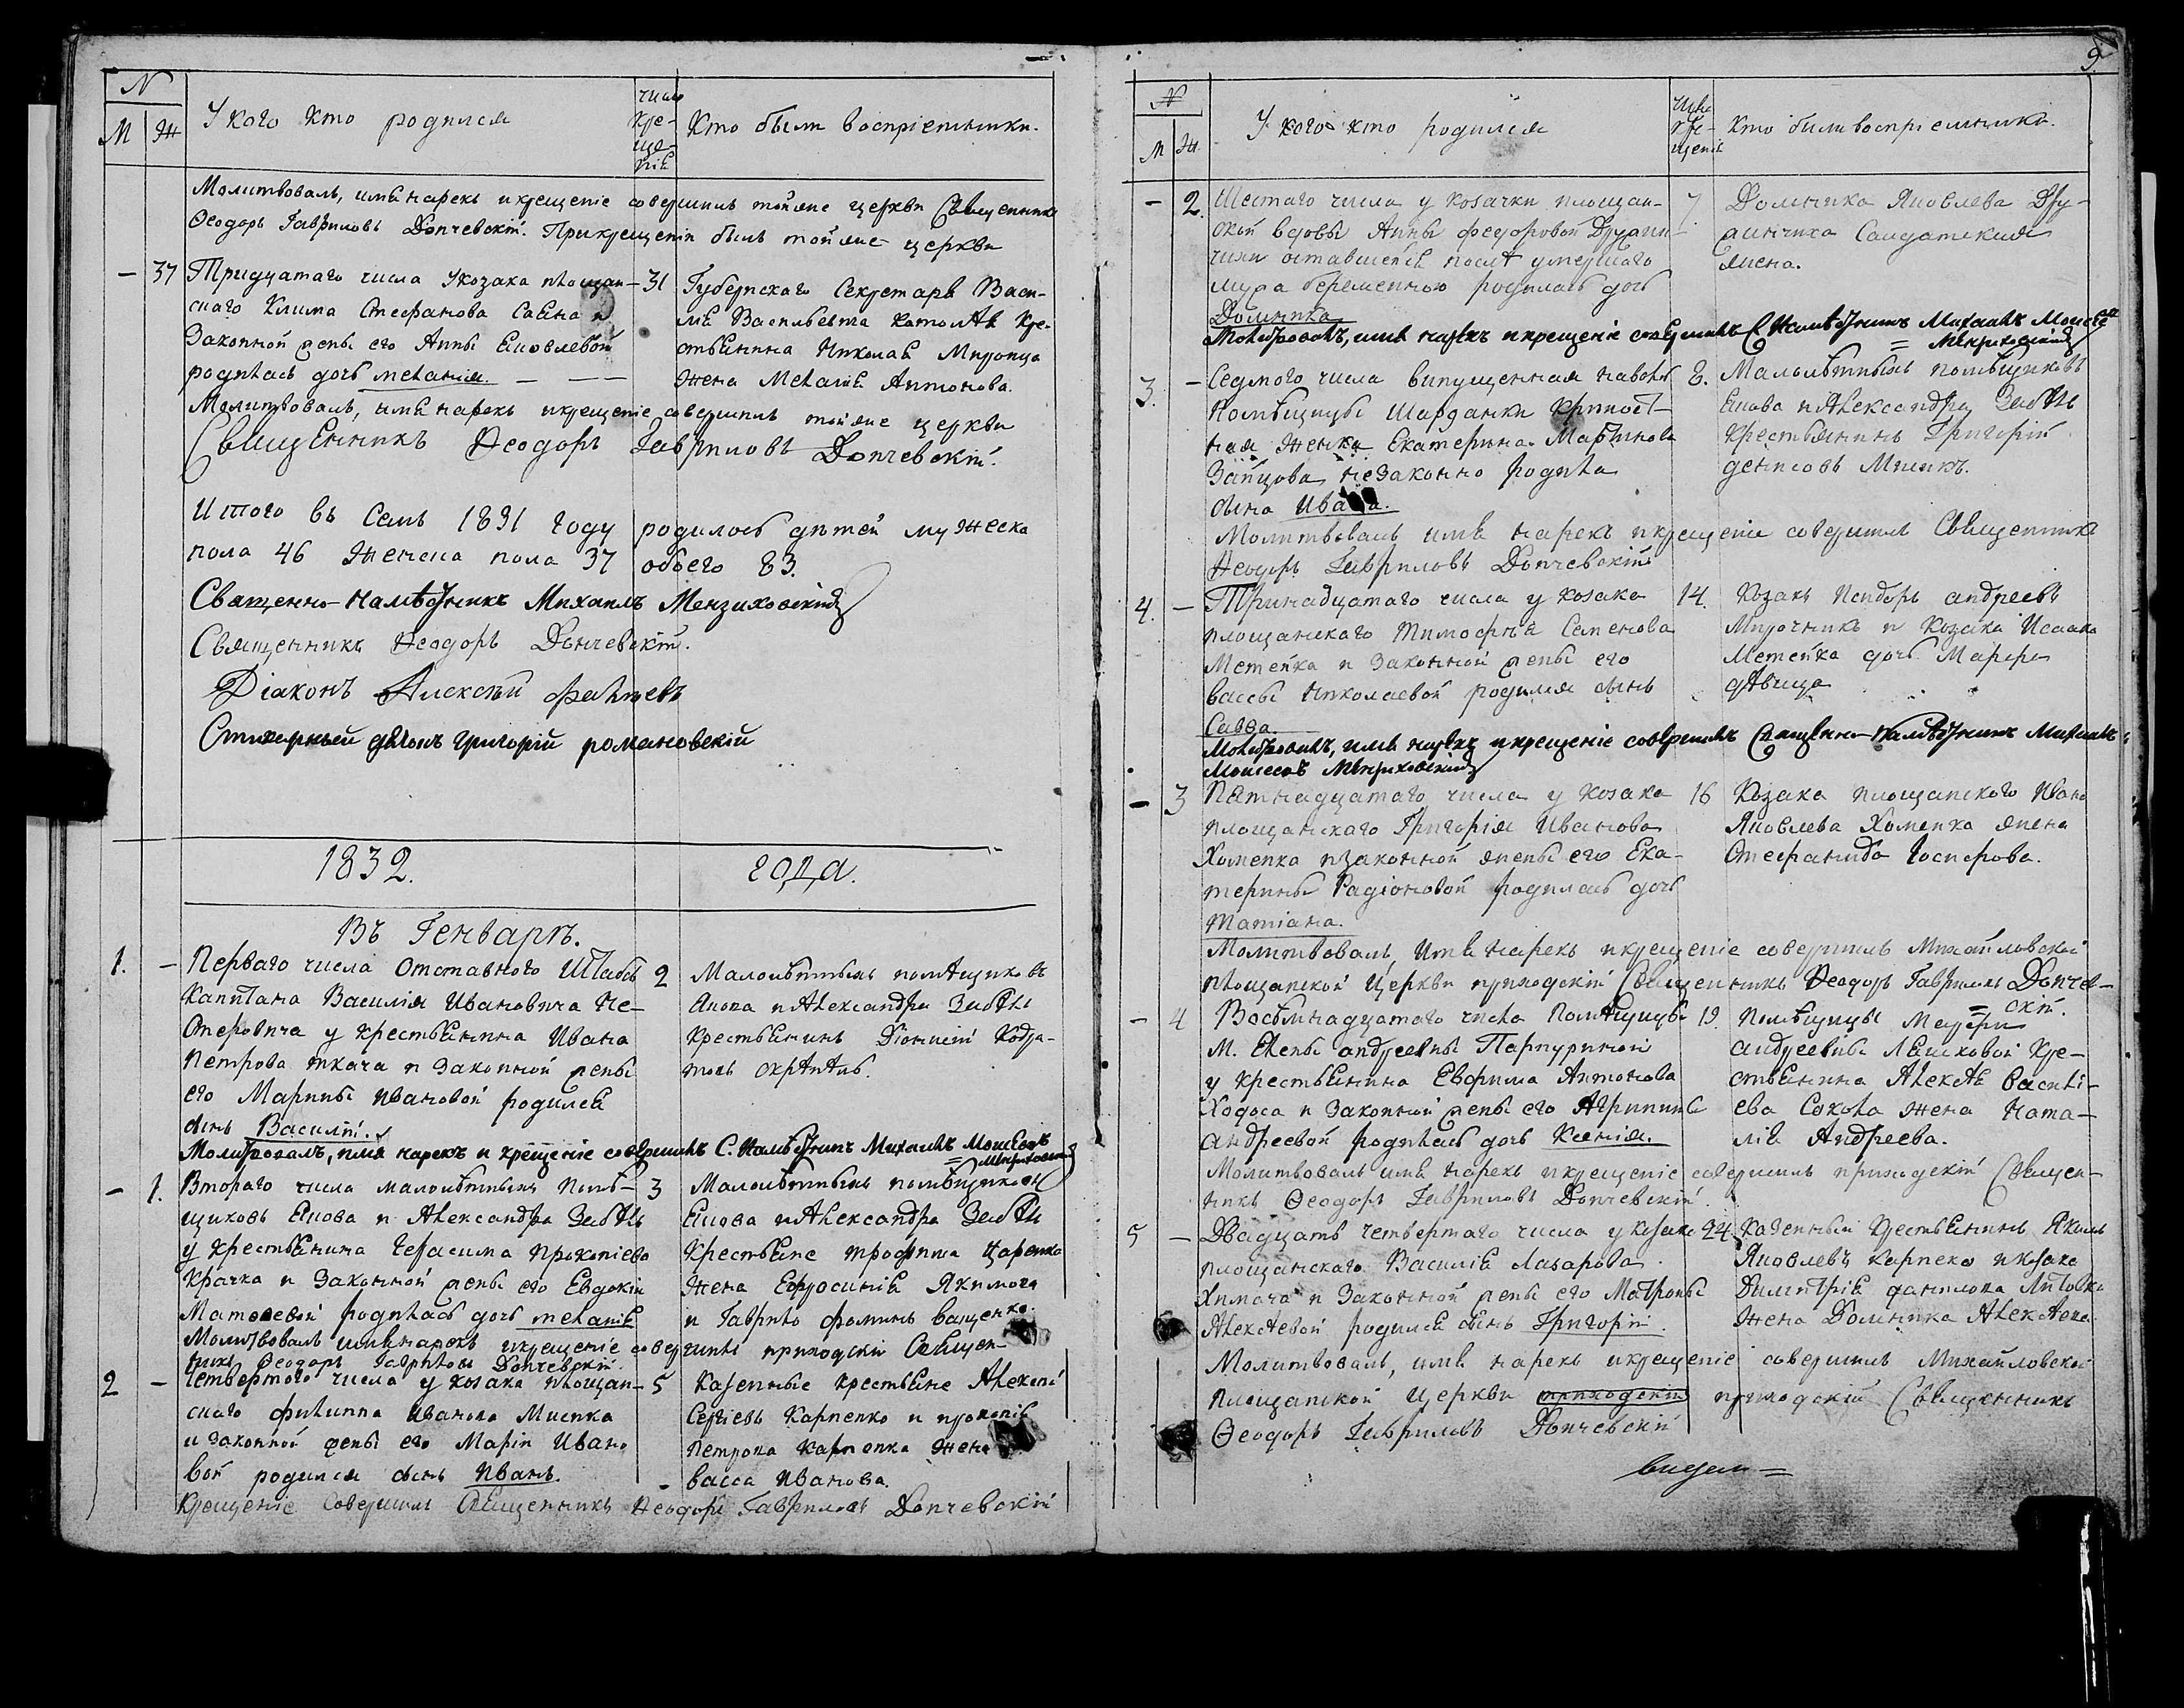 N
М Ж
У кого кто родился
число кре-
ще-
нія
Кто были воспріемники.
Молитвовалъ, имя нарекъ и крещеніе совершилъ той же церкви Священникъ
Ѳеодоръ Гавриловъ Дончевскій. При крещеніи былъ той же церкви
— 37 Тридцатаго числа у козака площан- 31
скаго Клима Стефанова Саена и
Законной жены его Анны Яковлевой
родилась дочь Меланія. — — —
Губернскаго Секретаря Васи-
лія Васильевича кре-
стьянина Николая Миронца
жена Меланія Антонова.
Молитвовалъ, имя нарекъ и крещеніе совершилъ той же церкви
Священникъ Ѳеодоръ Гавриловъ Дончевскій.
Итого въ семъ 1831 году родилось дѣтей мужеска
пола 46 женска пола 37 обоего 83.
Священно-Намѣстникъ Михаилъ Мензиховскій
Священникъ Ѳеодоръ Дончевскій.
Діаконъ Алексѣй
Стихарный дьячокъ Григорій Романовскій
1832. года.
Въ Генварѣ.
1. — Перваго числа Отставного Штабсъ 2
Капитана Василія Ивановича Не-
стеровича у крестьянина Ивана
Петрова ткача и Законной жены
его Марины Ивановой родился
сынъ Василій.
Малолѣтныхъ помѣщиковъ
Якова и Александра
Крестьянинъ Діонисій
Молитвовалъ, имя нарекъ и крещеніе совершилъ С. Намѣстникъ Михаилъ Моисеевъ
= Мензиховскій
— 1. Втораго числа малолѣтныхъ помѣ- 3
щиковъ Якова и Александра
у крестьянина Герасима Прокопіева
Крачка и Законной жены его Евдокіи
Матвеевой родилась дочь Меланія
Малолѣтныхъ помѣщиковъ
Якова и Александра
Крестьяне Трофима Царенка
жена Ефросинія Якимова
и Гаврило Фоминъ Ващенко.
Молитвовалъ имя нарекъ и крещеніе совершилъ приходскій Священ-
никъ Ѳеодоръ Гавриловъ Дончевскій.
2 — Четвертого числа у козака площан- 5
скаго Филиппа Иванова Мисика
и законной жены его Маріи Ивано
вой родился сынъ Иванъ.
Казенные крестьяне Алексѣй
Сергіевъ Карпенко и Прокопія
Петрова Карпенка жена
Васса Иванова.
Крещеніе Совершилъ Священникъ Ѳеодоръ Гавриловъ Дончевскій
9.
N
М Ж.
У кого кто родился
числ
кре-
щенія
Кто были воспріемники.
— 2. Шестаго числа у козачки площан- 7
ской вдовы Анны Федоровой
чихи оставшейся послѣ умершаго
мужа беременною родилась дочь
Домникa
Домника Яковлева
Салдатская
жена.
Молитвовалъ, имя нарекъ и крещеніе совершилъ С. Намѣстникъ Михаилъ Моисеевъ
= Мензиховскій
3. — Седмого числа выпущенная на волю 8.
Помѣщицы Шарданки крѣпост-
ная женка Екатерина Мартинова
Зайцова незаконно родила
сына Ивана.
Малолѣтныхъ помѣщиковъ
Якова и Александра
Крестьянинъ Григорій
Денисовъ Мисикъ.
Молитвовалъ имя нарекъ и крещеніе совершилъ Священникъ
Ѳеодоръ Гавриловъ Дончевскій
4. — Тринадцатаго числа у козака 14.
площанскаго Тимофѣя Семенова
Метейка и Законной жены его
Вассы Николаевой родился сынъ
Савва.
Козакъ Исидоръ Андреевъ
Мирочникъ и Козака Исаака
Метейка дочь Марфа
дѣвица
Молитвовалъ, имя нарекъ и крещеніе совершилъ Священно-Намѣстникъ Михаилъ
Моисеевъ Мензиховскій
— 3 Пятнадцатаго числа у козака 16
площанскаго Григорія Иванова
Хоменка и Законной жены его Ека-
терины Радіоновой родилась дочь
Татіана.
Козака площанского Ивана
Яковлева Хоменка жена
Стефанида Іосифова.
Молитвовалъ, имя нарекъ и крещеніе совершилъ Михайловской
площанской Церкви приходскій Священникъ Ѳеодоръ Гавриловъ Дончев-
= скій.
— 4 Восѣмнадцатаго числа Помѣщицы 19.
М. Елены Андреевны
у крестьянина Евфима Антонова
Ходоса и Законной жены его Агрипины
Андреевой родилась дочь Ксенія.
Помѣщицы
Андреевны Кре-
стьянина Алексѣя Василі-
ева Сокола жена Ната-
лія Андреева.
Молитвовалъ имя нарекъ и крещеніе совершилъ приходскій Священ-
никъ Ѳеодоръ Гавриловъ Дончевскій
5 — Двадцать четвертаго числа у козака 24.
площанскаго Василія Лазарова
Химача и Законной жены его Матроны
Алексѣевой родился сынъ Григорій.
Казенный Крестьянинъ Якимъ
Яковлевъ Карпеко и козака
Димитрія Данилова
жена Домника Алексѣева
Молитвовалъ, имя нарекъ и крещеніе совершилъ Михайловской
площанской Церкви приходскій приходскій Священникъ
Ѳеодоръ Гавриловъ Дончевскій